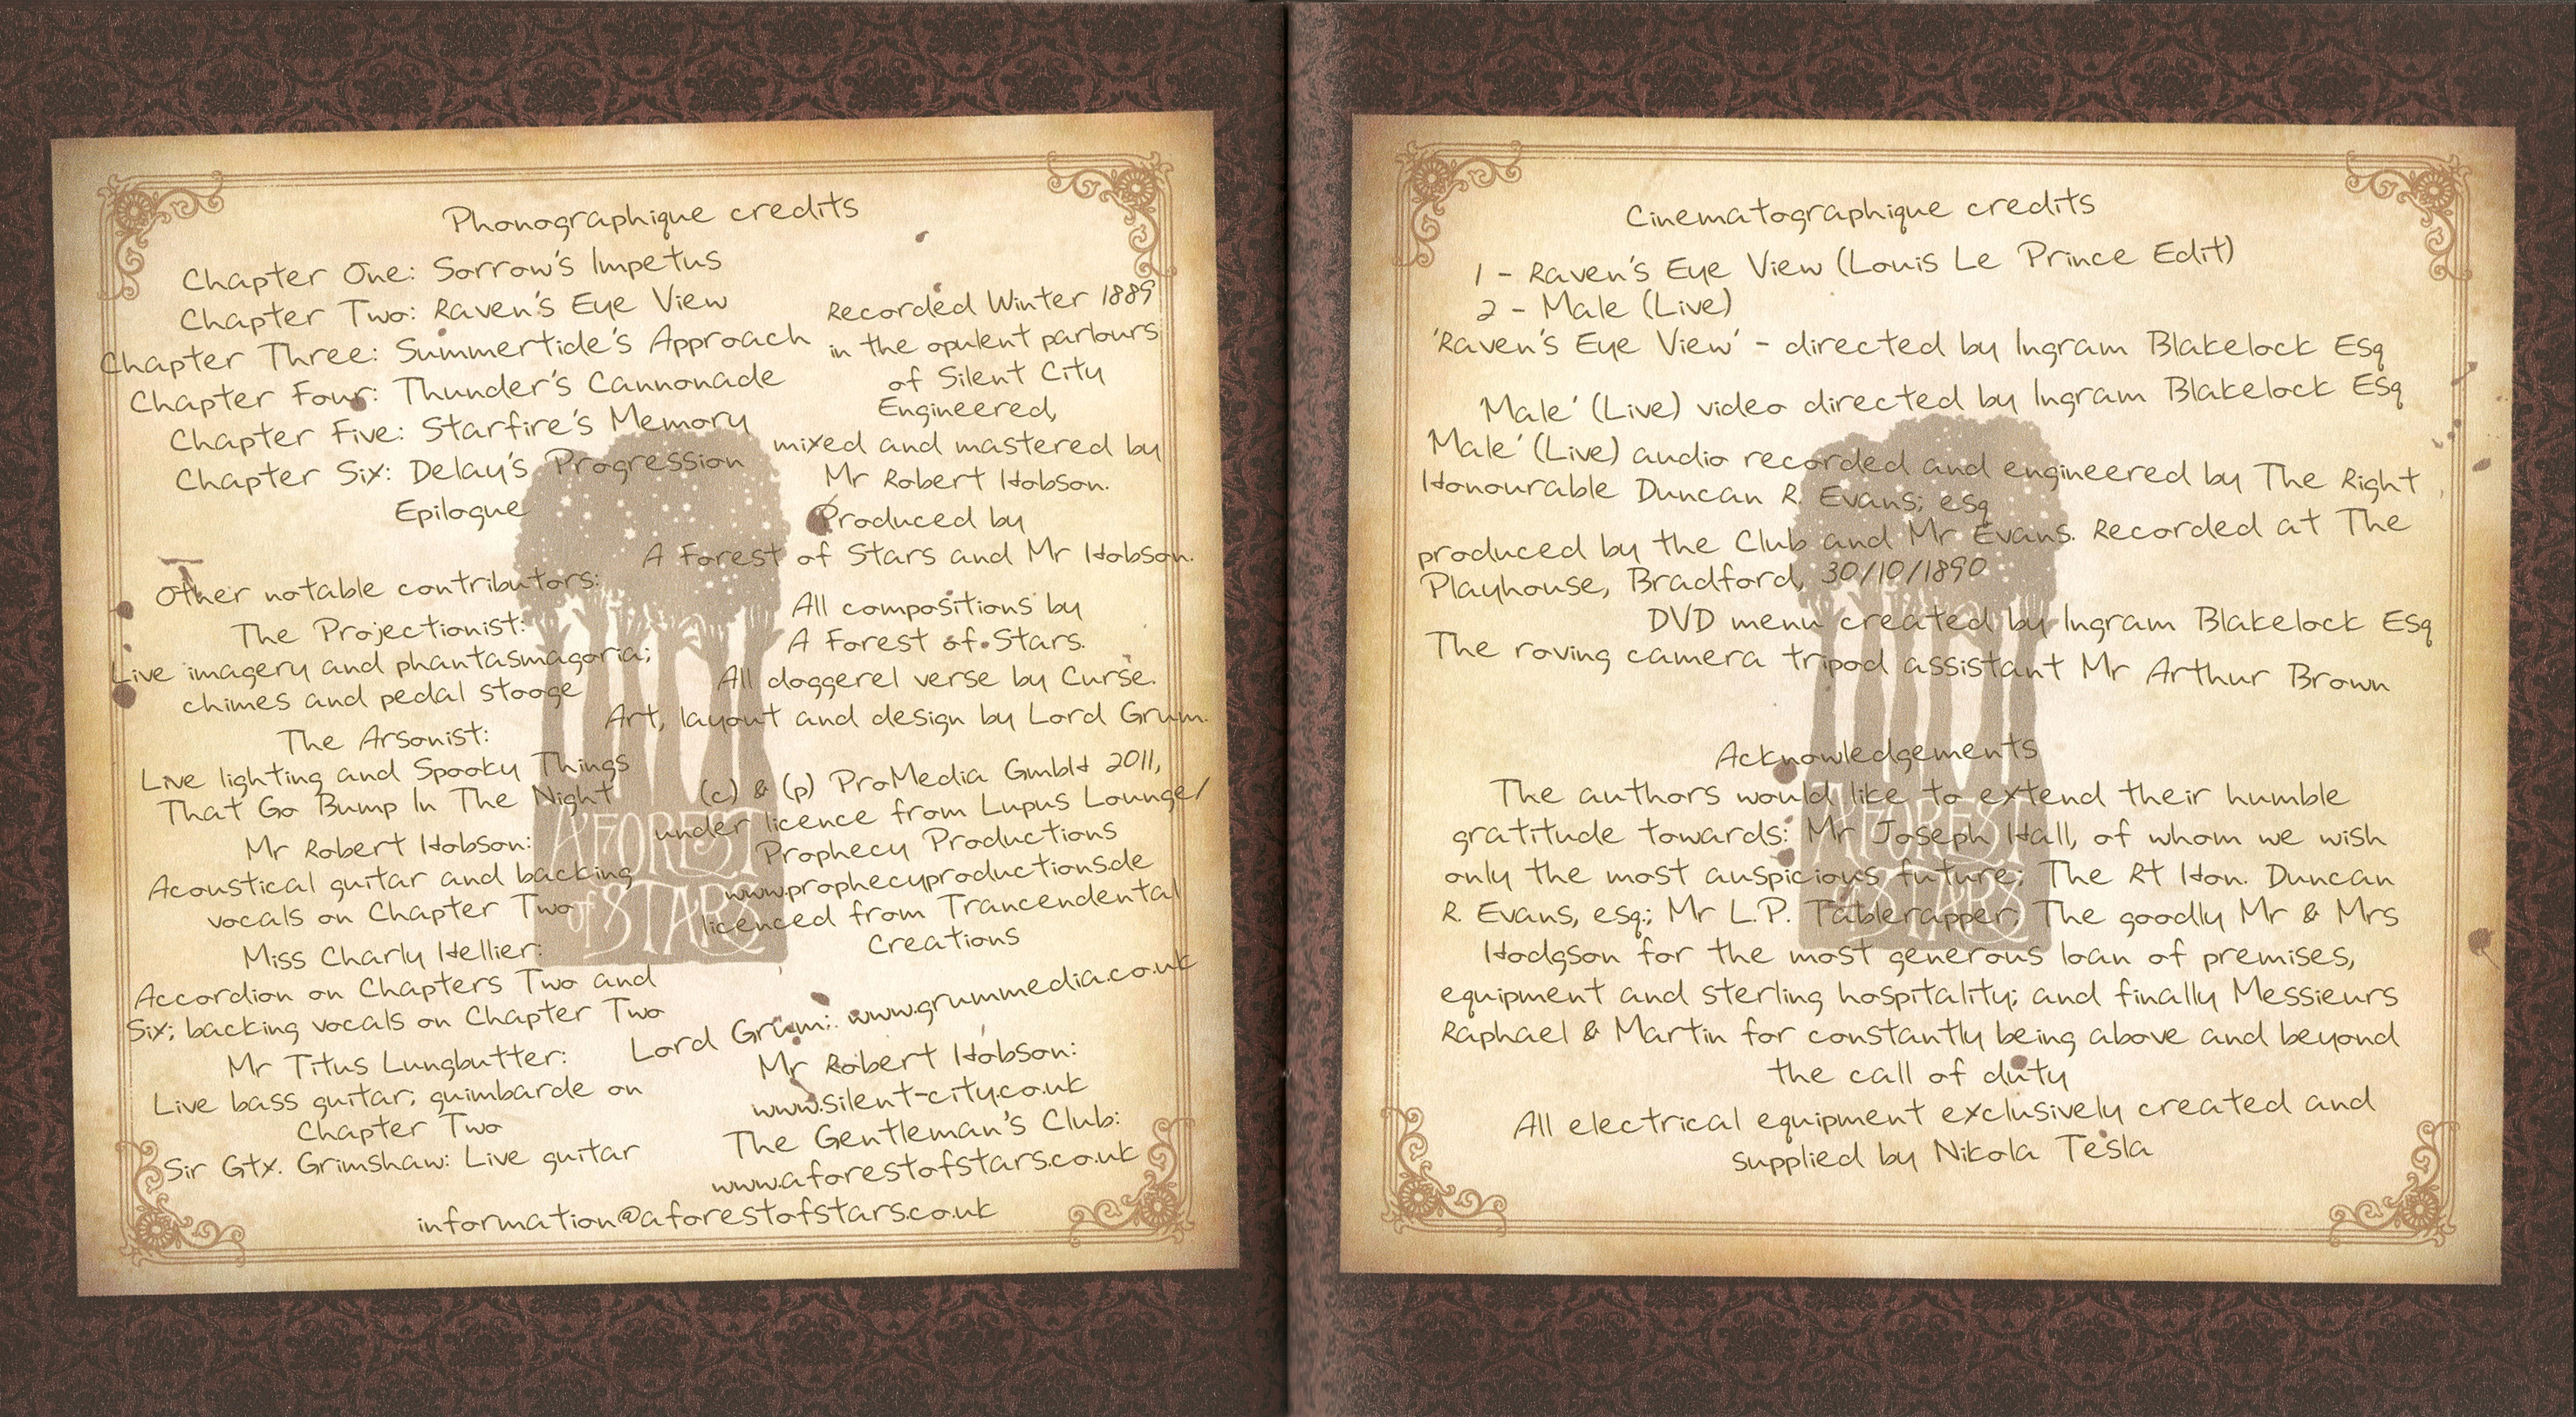 Phonographique credits
Chapter One: Sorrow's Impetus
Chapter Two: Raven's Eye View
Chapter Three: Summertide's Approach
Chapter Four: Thunder's Cannonade
Chapter Five: Starfire's Memory
Chapter Six: Delay's Progression
Epilogue
Other notable contributors:
The Projectionist:
Live imagery and phantasmagoria;
chimes and pedal stooge
The Arsonist:
Live lighting and Spooky Things
That Go Bump In The Night
Mr Robert Hobson:
Acoustical guitar and backing
vocals on Chapter Two
Miss Charly Hellier:
Accordion on Chapters Two and
Six; backing vocals on Chapter Two
Mr Titus Lungbutter:
Live bass guitar; guimbarde on
Chapter Two
Sir Gtx. Grimshaw: Live guitar
Recorded Winter 1889
in the opulent parlours
of Silent City
Engineered,
mixed and mastered by
Mr Robert Hobson.
Produced by
A Forest of Stars and Mr Hobson.
All compositions by
A Forest of Stars.
All doggerel verse by Curse.
Art, layout and design by Lord Grum.
(c) & (p) ProMedia GmbH 2011,
under licence from Lupus Lounge/
Prophecy Productions
www.prophecyproductions.de
licenced from Trancendental
Creations
Lord Grum: www.grummedia.co.uk
Mr Robert Hobson:
www.silent-city.co.uk
The Gentleman's Club:
www.aforestofstars.co.uk
information@aforestofstars.co.uk
A FOREST
of STARS
Cinematographique credits
1 - Raven's Eye View (Louis Le Prince Edit)
2 - Male (Live)
'Raven's Eye View' - directed by Ingram Blakelock Esq
'Male' (Live) video directed by Ingram Blakelock Esq
'Male' (Live) audio recorded and engineered by The Right
Honourable Duncan R. Evans; esq
produced by the Club and Mr Evans. Recorded at The
Playhouse, Bradford, 30/10/1890
DVD menu created by Ingram Blakelock Esq
The roving camera tripod assistant Mr Arthur Brown
Acknowledgements
The authors would like to extend their humble
gratitude towards: Mr Joseph Hall, of whom we wish
only the most auspicious future; The Rt Hon. Duncan
R. Evans, esq.; Mr L.P. Tablerapper; The goodly Mr & Mrs
Hodgson for the most generous loan of premises,
equipment and sterling hospitality; and finally Messieurs
Raphael & Martin for constantly being above and beyond
the call of duty
All electrical equipment exclusively created and
supplied by Nikola Tesla
A FOREST
of STARS